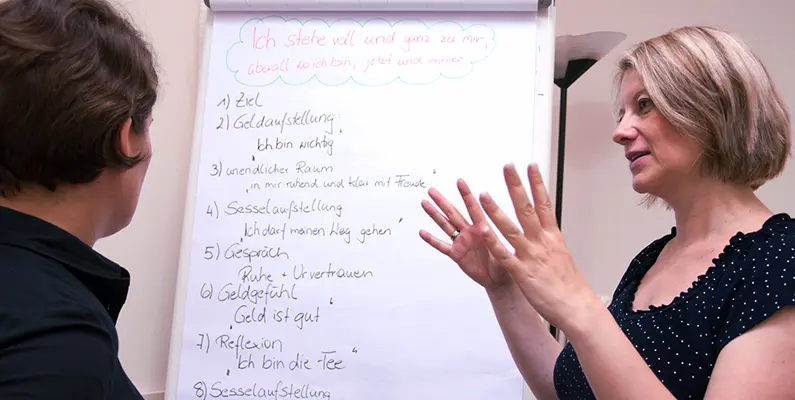 Ich stehe voll und ganz zu mir,
überall wo ich bin, jetzt und immer
1) Ziel
2) Geldaufstellung
"Ich bin wichtig"
3) unendlicher Raum
"in mir ruhend und klar mit Freude"
4) Sesselaufstellung
"Ich darf meinen Weg gehen"
5) Gespräch
Ruhe + Urvertrauen
6) Geldgefühl
"Geld ist gut"
7) Reflexion
"Ich bin die Fee"
8) Sesselaufstellung